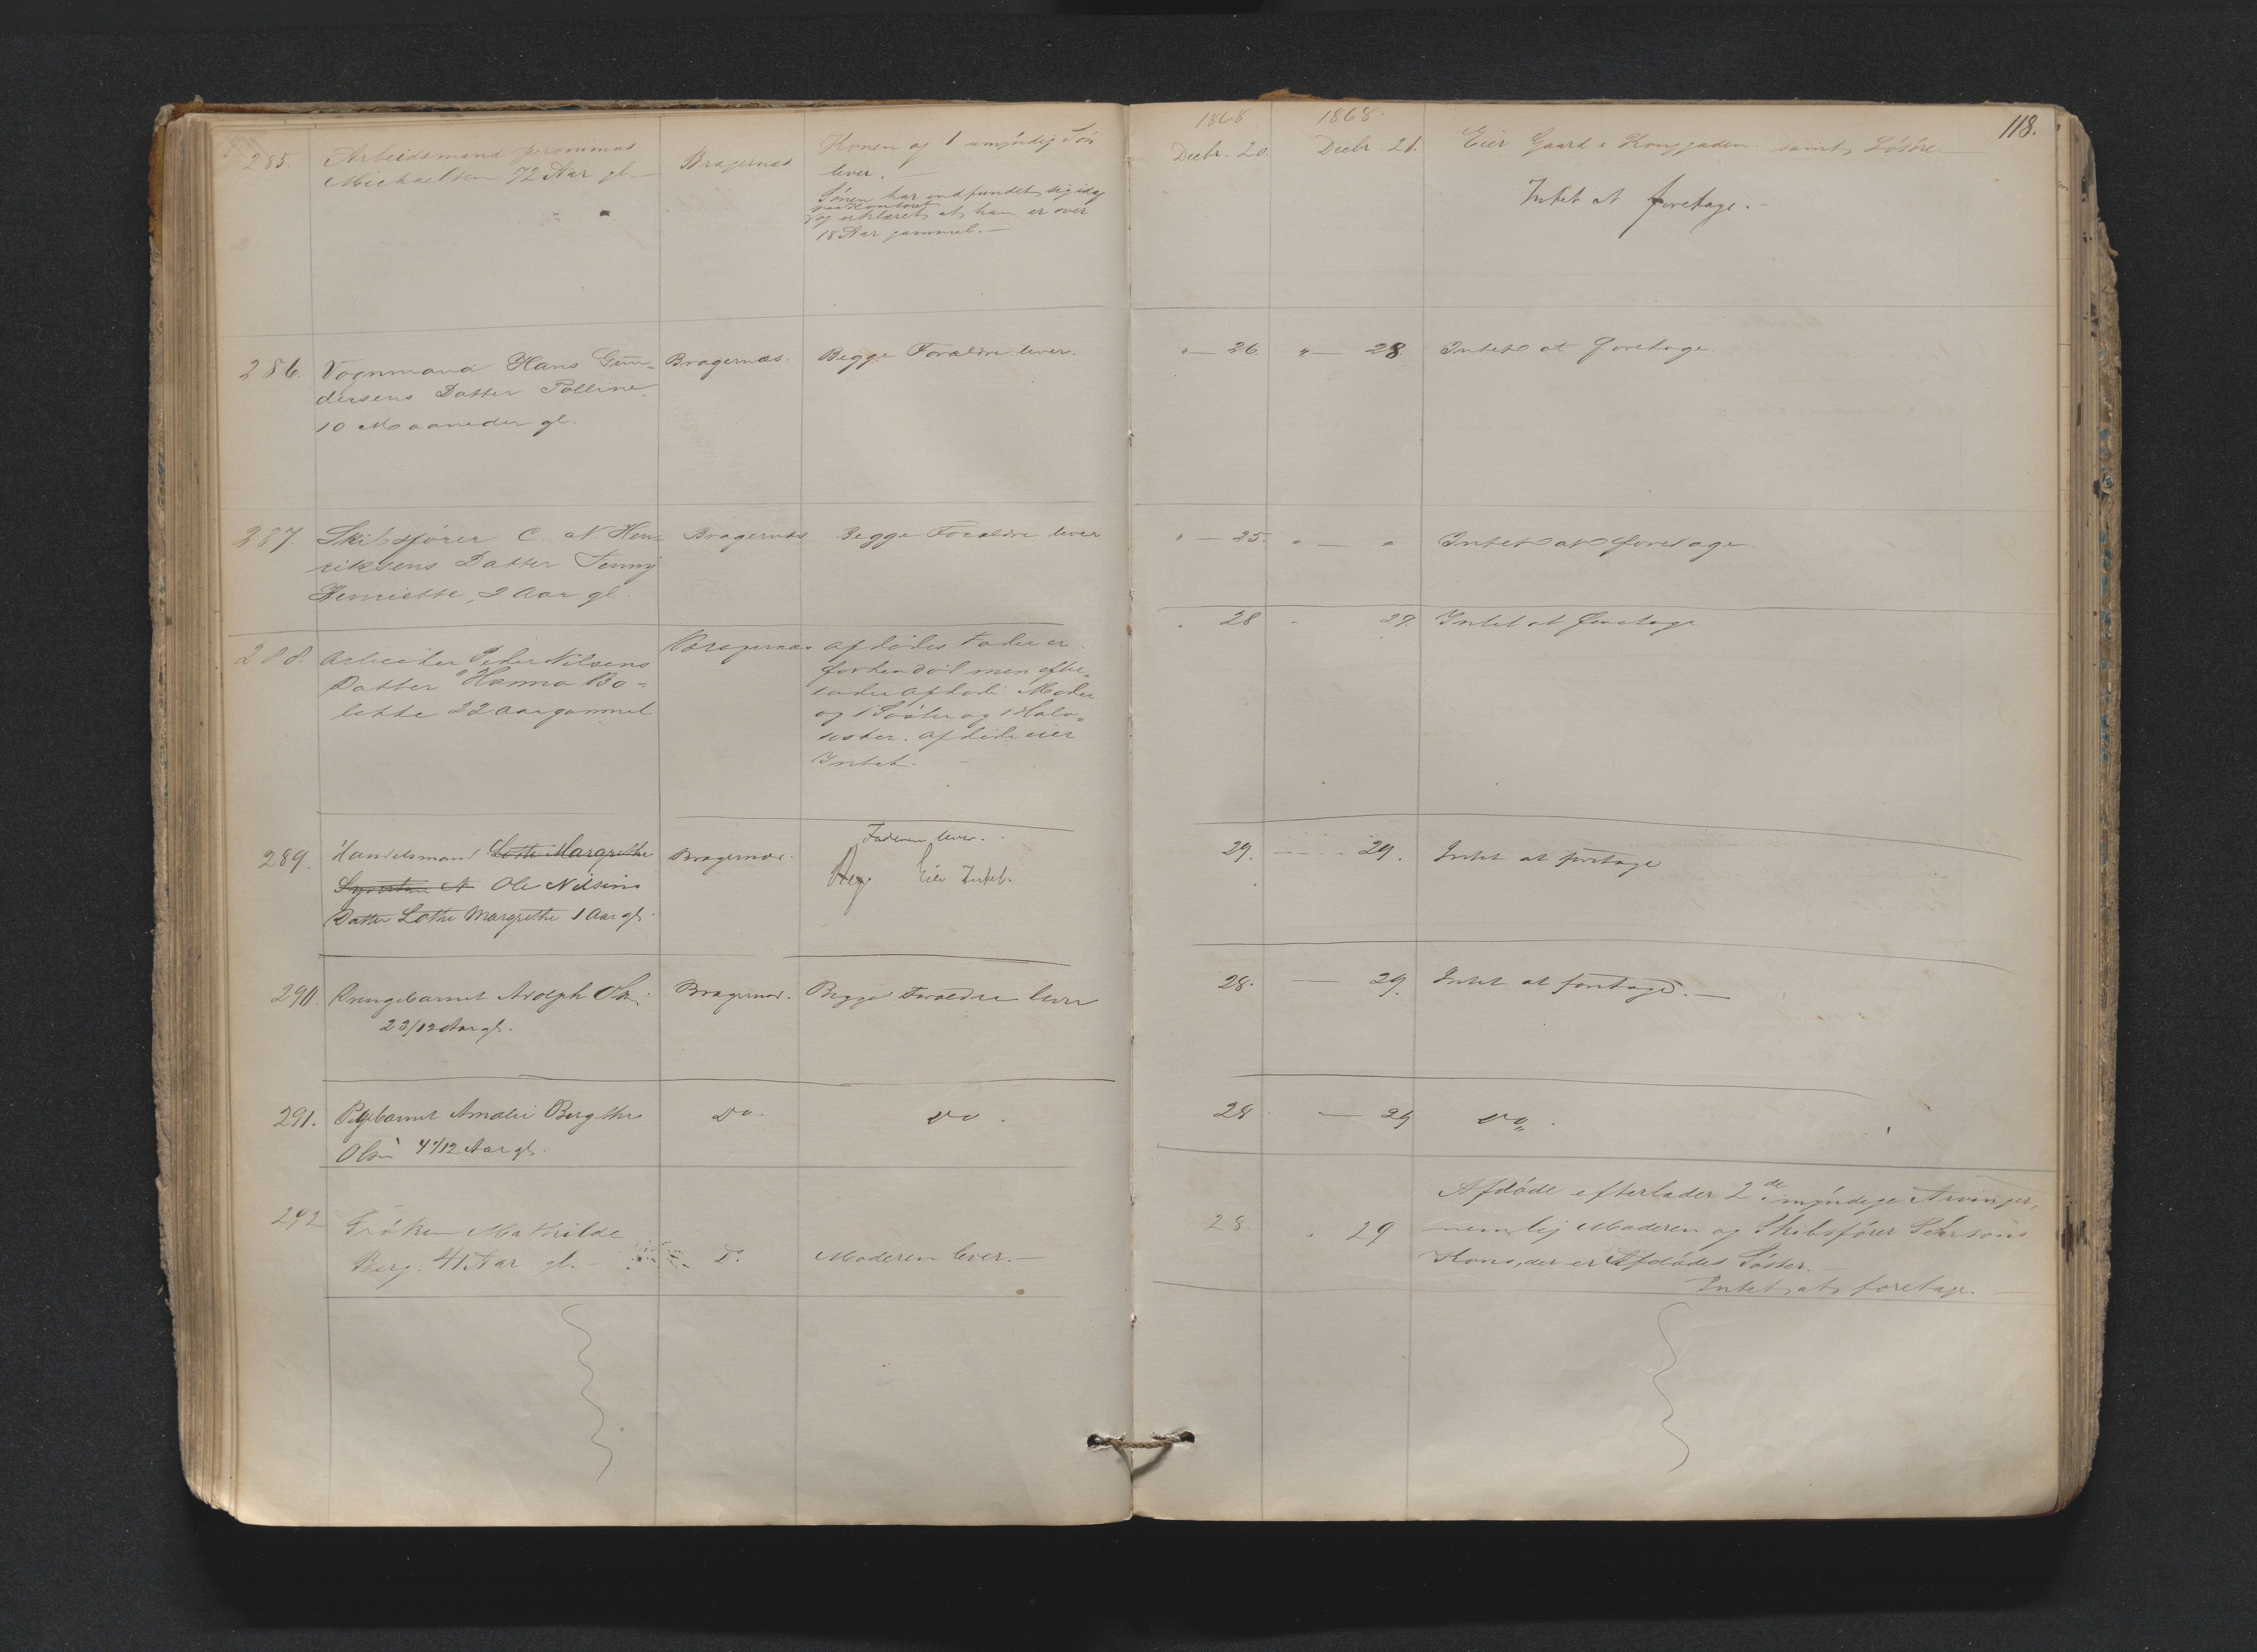 118.
1868
1868.
285.
Arbeidsmand Jeronimus
Michaelsen 72 Aar gl.
Bragernæs
Konen og 1 umyndig Søn
lever.
Sønen har indfundet sig idag
paa Kontoret
og erklæret, at han er over
18 Aar gammel.
Decbr. 20.
Decbr. 21.
Eier Gaard i Konggaden samt Løsøre
Intet at foretage.
286.
Vognmand Hans Gun-
dersens Datter Polline
10 Maaneder gl.
Bragernæs.
Begge Forældre lever.
" — 26.
" — 28.
Intet at foretage.
287
Skibsfører C. N. Hen-
riksens Datter Jenny
Henriette, 2 Aar gl.
Bragernæs
Begge Forældre lever
" — 25.
" — "
Intet at foretage
288.
Arbeider Peder Nilsens
Datter Hanna Bo-
lette 22 Aar gammel
Bragernæs
Afdødes Fader er
forhen død men efter-
lader Afdøde Moder
og 1 Søster og 1 Halv-
søster. Afdøde eier
Intet.
28
29.
Intet at foretage
289.
Handelsmand Lothe Margrethe
Syvertsen N Ole Nilsens
Datter Lothe Margrethe 1 Aar gl.
Bragernæs.
Faderen lever.
Beg Eier Intet.
29.
29.
Intet at foretage
290.
Drengebarnet Adolph Ols.
23/12 Aar gl.
Bragernæs.
Begge Forældre lever
28.
— 29.
Intet at foretage. —
291.
Pigebarnet Amalie Bergithe
Olsen 4 1/12 Aar gl.
Do.
Do.
28
— 29
Do.
292
Frøken Mathilde
Berg. 41 Aar gl.
Do.
Moderen lever. —
28.
29
Afdøde efterlader 2de myndige Arvinger,
nemlig Moderen og Skibsfører Pehrsons
Kone, der er Afdødes Søster. —
Intet at foretage. —